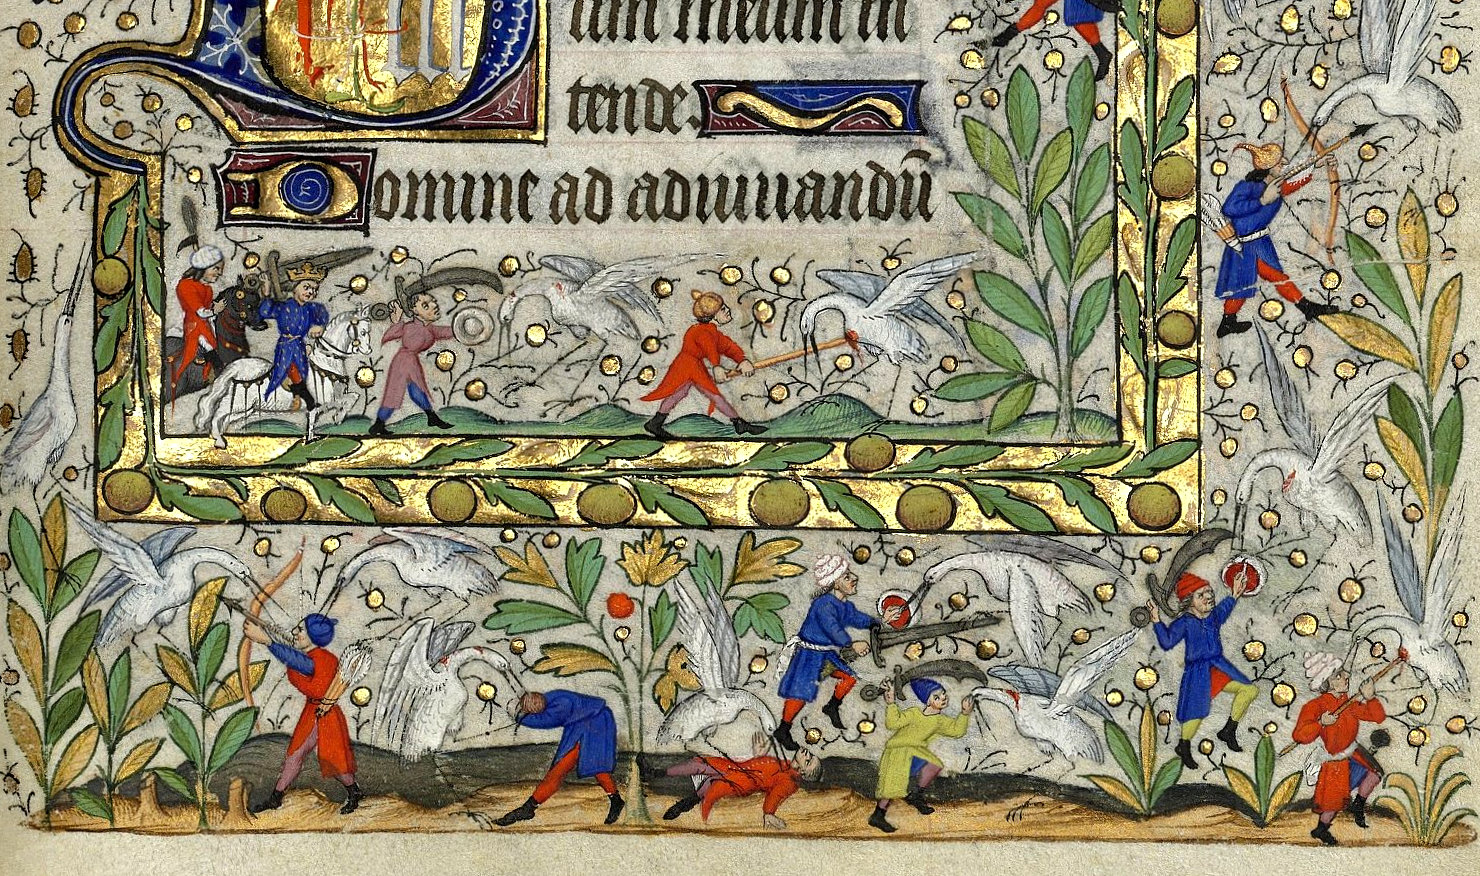 um meum in
tende.
Domine ad adiuuandū